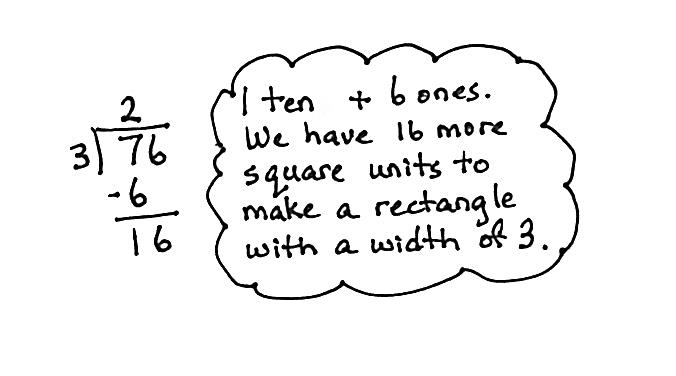 2
3) 76
-6
16
1 ten + 6 ones.
We have 16 more
square units to
make a rectangle
with a width of 3.